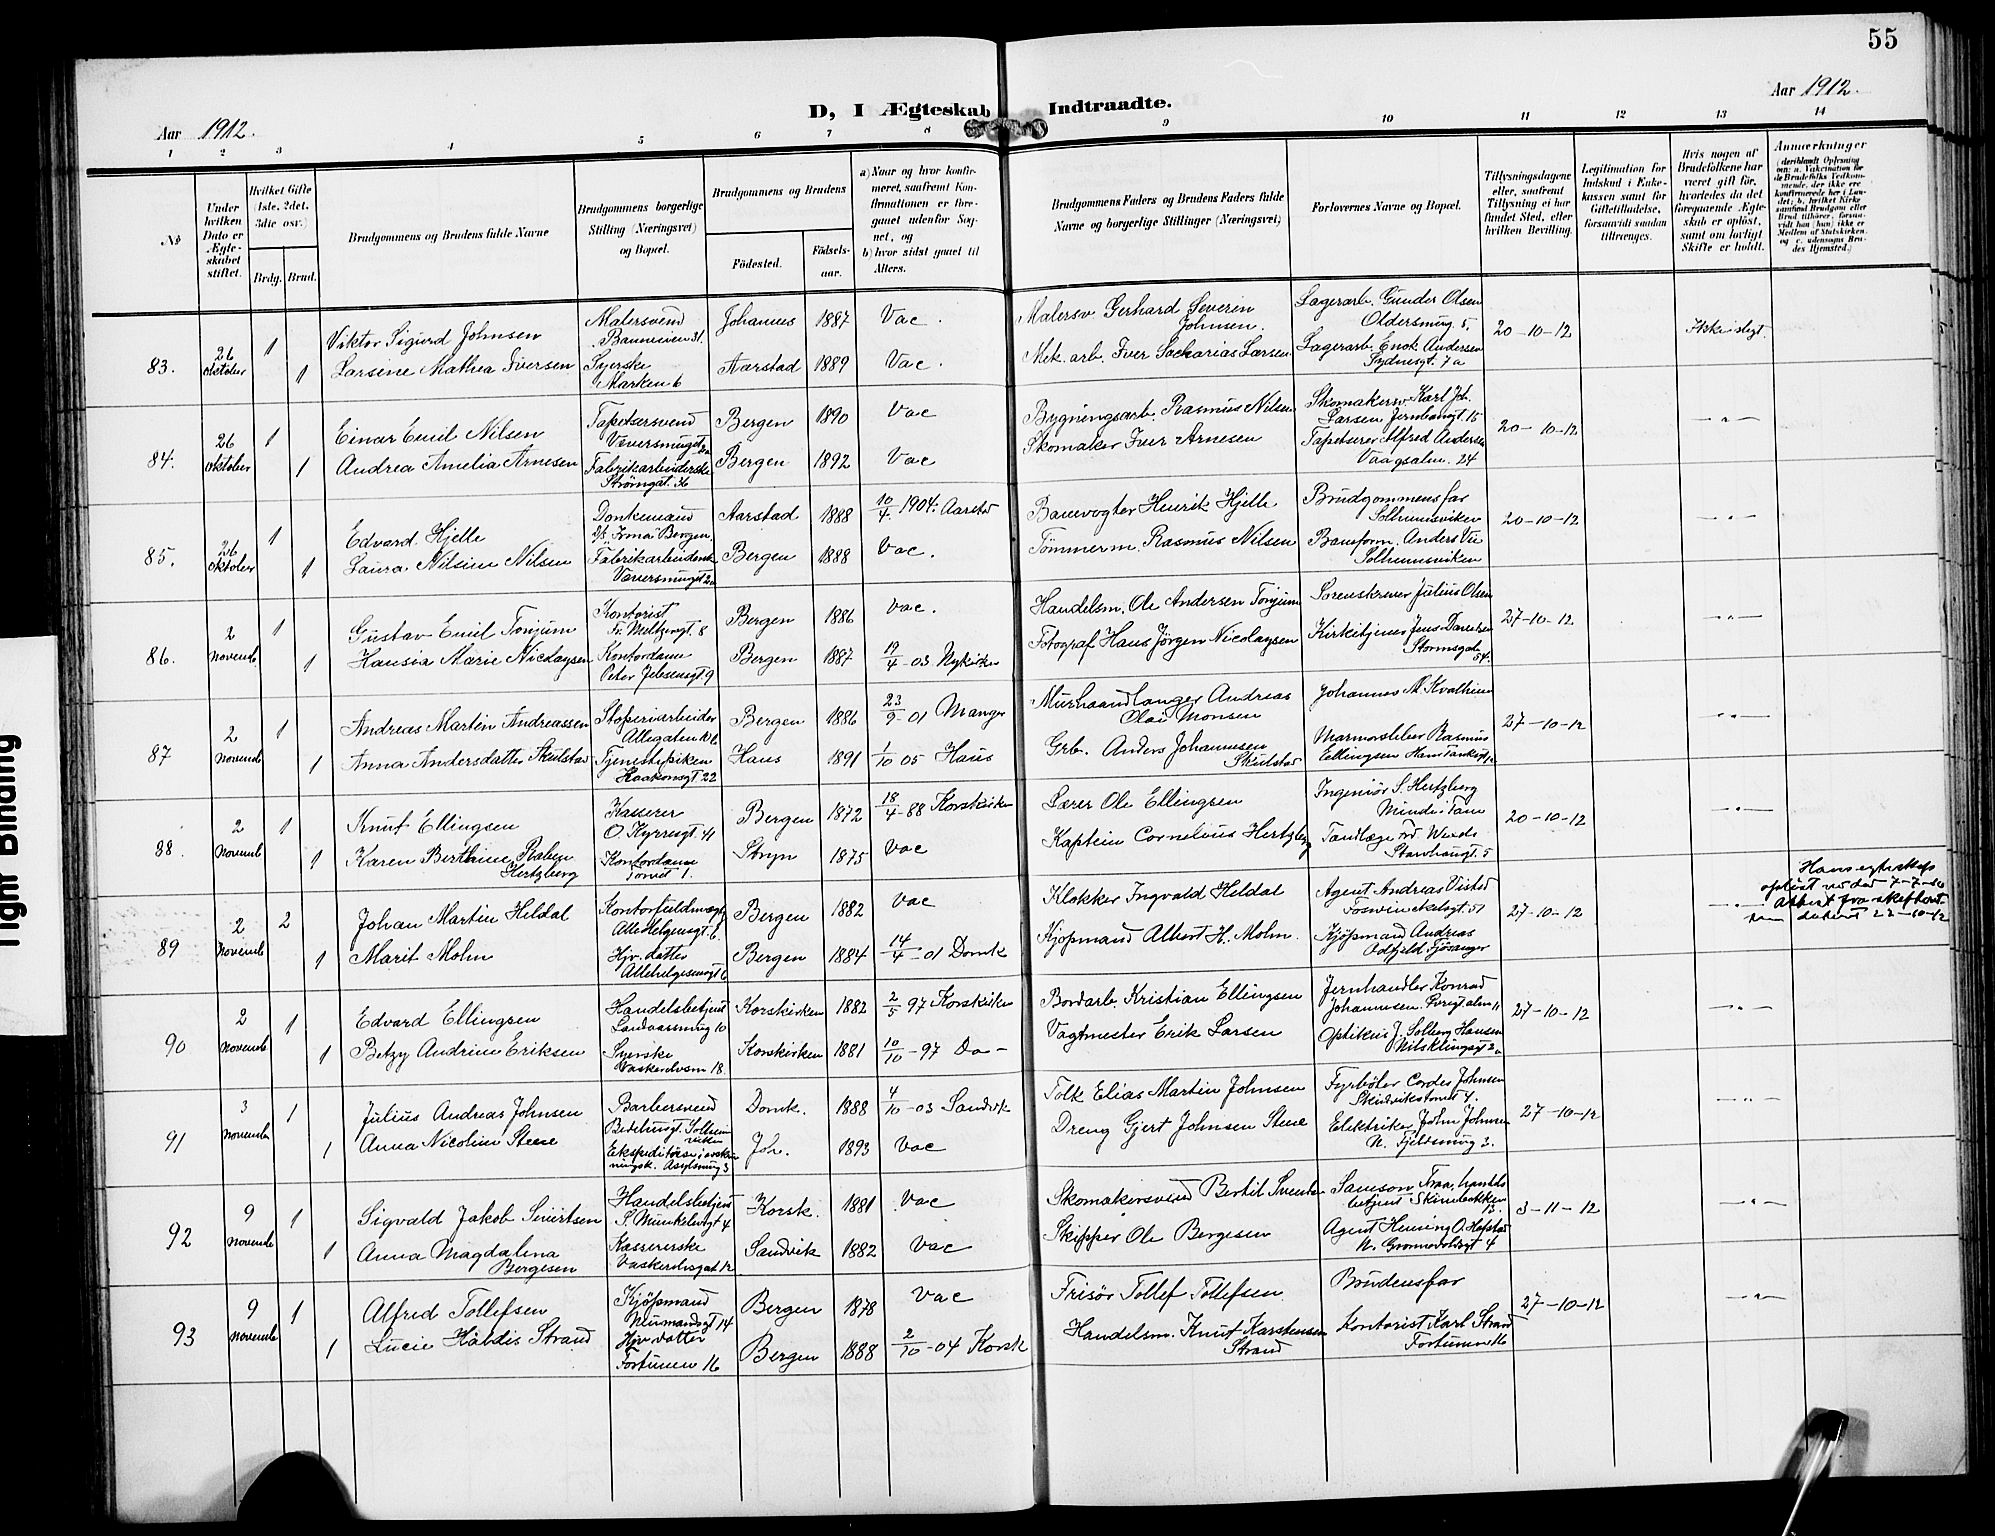 55
Aar 1912.
D, I Ægteskab Indtraadte.
Aar 1912.
1 2 3 4 5 6 7 8 9 10 11 12 13 14
No
Under hvilken Dato er Ægteskabet stiftet.
Hvilket Gifte (1ste. 2det. 3die osv.)
Brdg. Brud.
Brudgommens og Brudens fulde Navne
Brudgommens borgerlige Stilling (Næringsvei) og Bopæl.
Brudgommens og Brudens
Fødested.
Fødselsaar.
a) Naar og hvor konfirmeret, saafremt Konfirmationen er foregaaet udenfor Sognet, og
b) hvor sidst gaaet til Alters.
Brudgommens Faders og Brudens Faders fulde Navne og borgerlige Stillinger (Næringsvei)
Forlovernes Navne og Bopæl.
Tillysningsdagene eller, saafremt Tillysning ei har fundet Sted, efter hvilken Bevilling.
Legitimation for Indskud i Enkekassen samt for Giftetilladelse, forsaavidt saadan tiltrænges.
Hvis nogen af Brudefolkene har været gift før, hvorledes da det foregaaende Ægteskab er opløst, samt om lovligt Skifte er holdt.
Anmærkninger
83. 26 oktober 1 Viktor Sigurd Johnsen Malersvend Johannes 1887 Vac. Malersv. Gerhard Severin Johnsen. Lagerarb. Gunder Olsen Oldersmug. 5. 20-10-12
1 Larsine Mathea Iversen Syerske Marken 6 Aarstad 1889 Vac. Mek. arb. Iver Sacharias Larsen Lagerarb. Enok Andersen Sydnesgt. 7a
84. 26 oktober 1 Einar Emil Nilsen Tapetsersvend Bergen 1890 Vac Bygningsarb. Rasmus Nilsen Skomakersv Karl Joh. Larsen 20-10-12
1 Andrea Amelia Arnesen Fabrikarbeiderske Strømgt. 36 Bergen 1892 Vac Skomaker Iver Arnesen Tapetserer Alfred Andersen Vaagsalm. 24
85. 26 oktober 1 Edvard Hjelle Donkemand Aarstad 1888 10/4 1904. Aarstad Banevogter Henrik Hjelle Brudgommens far Solheimsviken 20-10-12
1 Laura Nilsine Nilsen Bergen 1888 Vac. Tømmerm. Rasmus Nilsen Baneform. Anders Solheimsviken
86. 2 Novemb. 1 Gustav Emil Tonjum Kontorist Fr. Meltzersgt. 8 Bergen 1886 Vac. Handelsm. Ole Andersen Tonjum Sorenskriver Julius Olsen 27-10-12
1 Hansia Marie Nicolaysen Kontordame Bergen 1887 19/4-03 Nykirken Fotograf Hans Jørgen Nicolaysen Kirketjener Jens Stormsgate 54.
87 2 Novemb 1 Andreas Martin Andreassen Støperiarbeider Bergen 1886 23/9-01 Manger Murhaandlanger Andreas Olai Monsen Johannes M. Kvalheim 27-10-12
1 Anna Andersdatter Skulstad Tjenestepiken Haakonsgt. 22 Haus 1891 1/10 05 Haus Grb. Anders Johannesen Skulstad Rasmus Ellingsen
88. 2 Novemb 1 Knut Ellingsen Kasserer O. Kyrresgt. 41 Bergen 1872 18/4-88 Korskirken Lærer Ole Ellingsen Ingeniør S. Hertzberg 20-10-12
1 Karen Berthine Hertzberg Kontordame Torvet 1. Stryn 1875 Vac Kaptein Cornelius Hertzberg Tandlæge
89 2 Novemb 2 Johan Martin Heldal Bergen 1882 Vac Klokker Ingvald Heldal Agent Andreas Visted 27-10-12 Hans egteskap opløst ved død
1 Marit Mohn Hjv. datter Allehelgensgt 6 Bergen 1884 14/4-01 Domk Kjøpmand Albert H. Mohn. Kjøpmand Andreas Odfjeld Fjøsanger
90 2 Novemb 1 Edvard Ellingsen Handelsbetjent Korskirken 1882 2/5 97 Korskirken Bordarb. Kristian Ellingsen Jernhandler Konrad Johannesen. 27-10-12
1 Betzy Andrine Eriksen Syerske Korskirken 1881 10/10-97 Do- Vagtmester Erik Larsen Optiker J. Solberg Hansen
91 3 Novemb 1 Julius Andreas Johnsen Barbersvend Domk. 1888 4/10-03 Sandvik Tolk Elias Martin Johnsen Fyrbøter Cordes Johnsen 27-10-12
1 Anna Nicoline Steee Joh. 1893 Vac Dreng Gjert Johnsen Steee Elektriker John Johnsen N. Fjeldsmug 2.
92 9 Novemb 1 Sigvald Jakob Sivertsen Handelsbetjent Korsk. 1881 Vac Skomakersvend Bertil Samson 3-11-12
1 Anna Magdalena Bergesen Kassererske Sandvik 1882 Vac Skipper Ole Bergesen Agent
93 9 Novemb 1 Alfred Tollefsen Kjøpmand Neumandsgt 14 Bergen 1878 Vac Frisør Tollef Tollefsen Brudens far 27-10-12
1 Lucie Haldis Strand Hjv. datter Fortunen 16 Bergen 1888 2/10-04 Korsk Handelsm. Knut Karstensen Strand Kontorist Karl Strand Fortunen 16
Tight Binding